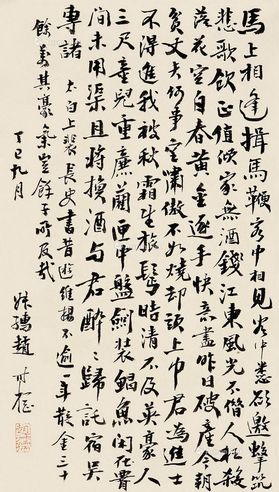 馬上相逢揖馬鞭客中相見客中欲邀擊筑
悲歌飲正值傾家無酒錢江東風光不借人枉殺
落花空自春黃金逐手快意盡昨日破產今朝
貧丈夫何事空嘯傲不如燒却頭上巾君為進士
不得進我被秋霜生旅鬢時清不及英豪人
三尺童兒重廉藺匣中盤劍裝䱜魚閒在腰
間未用渠且將換酒與君醉醉歸託宿吳
專諸 太白上裴長史書昔遊維揚不逾一年散金三十
餘萬其豪氣豈餘子所及哉
丁巳九月
叔孺趙時棡